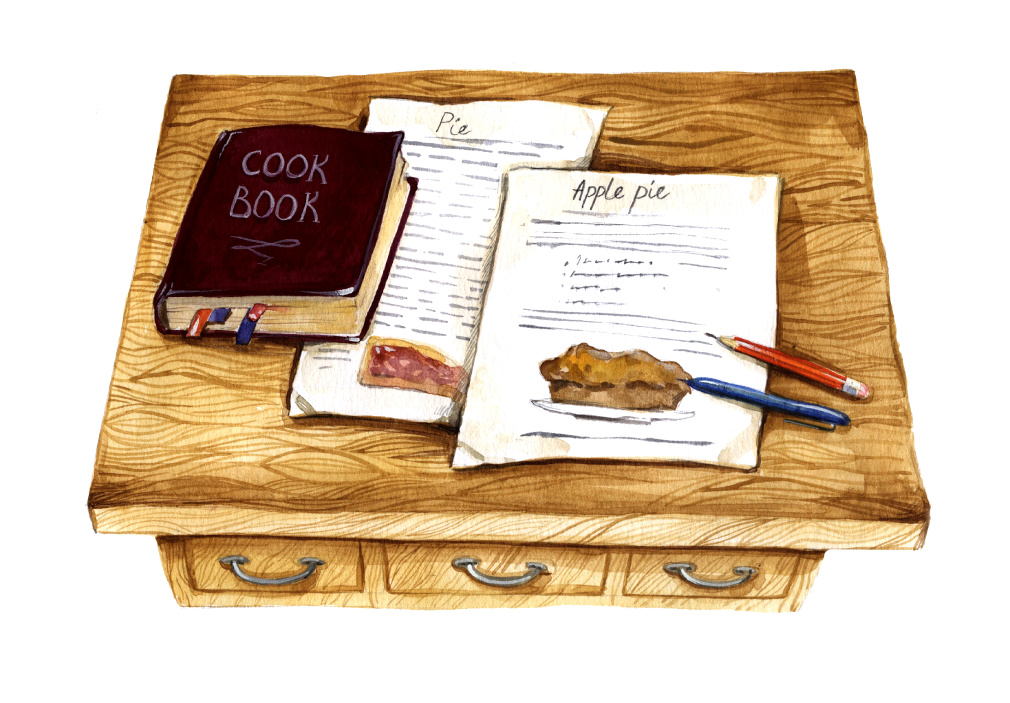 COOK
BOOK
Pie
Apple pie